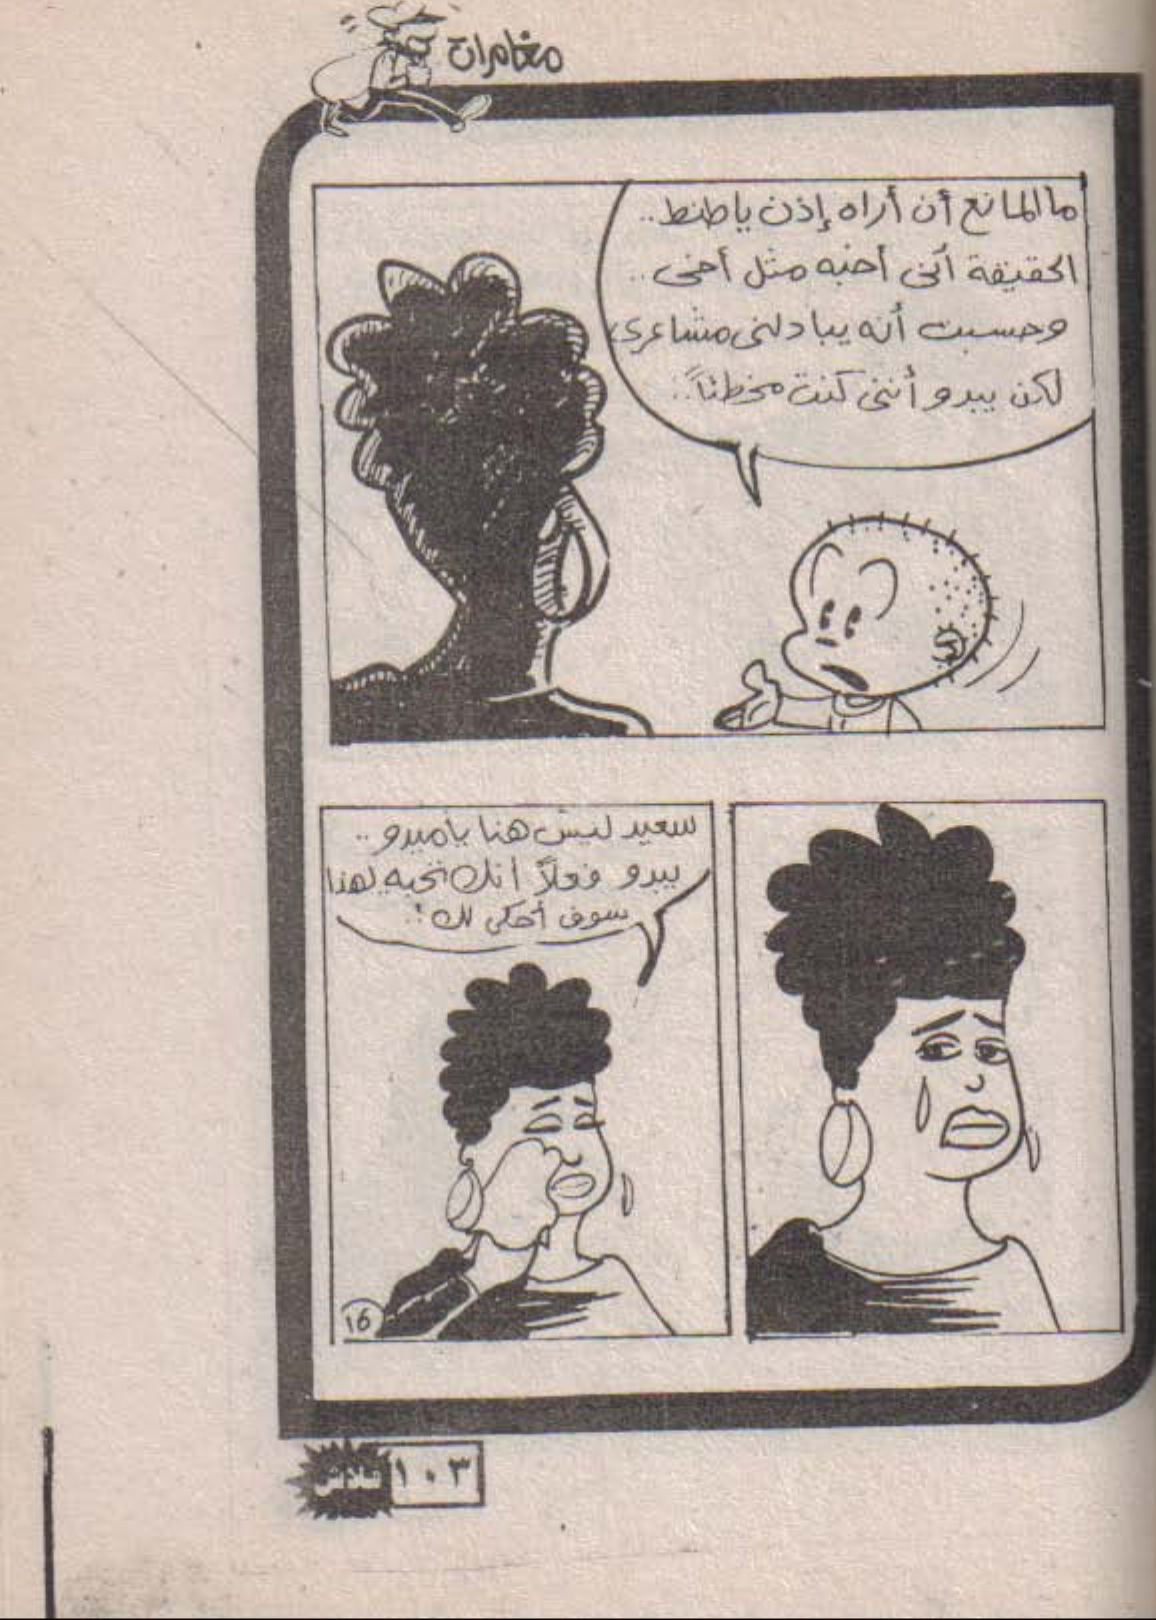 مغامرات
ما المانع أن أراه إذن يا طنط..
الحقيقة أننى أحبه مثل أخى..
وحسبت أنه يبادلنى مشاعرى
لكن يبدو أننى كنت مخطئاً..
سعيد ليس هنا يا ميدو..
يبدو فعلاً انك تحبه لهذا
سوف أحكى لك!
١٦
فلاش ١٠٣